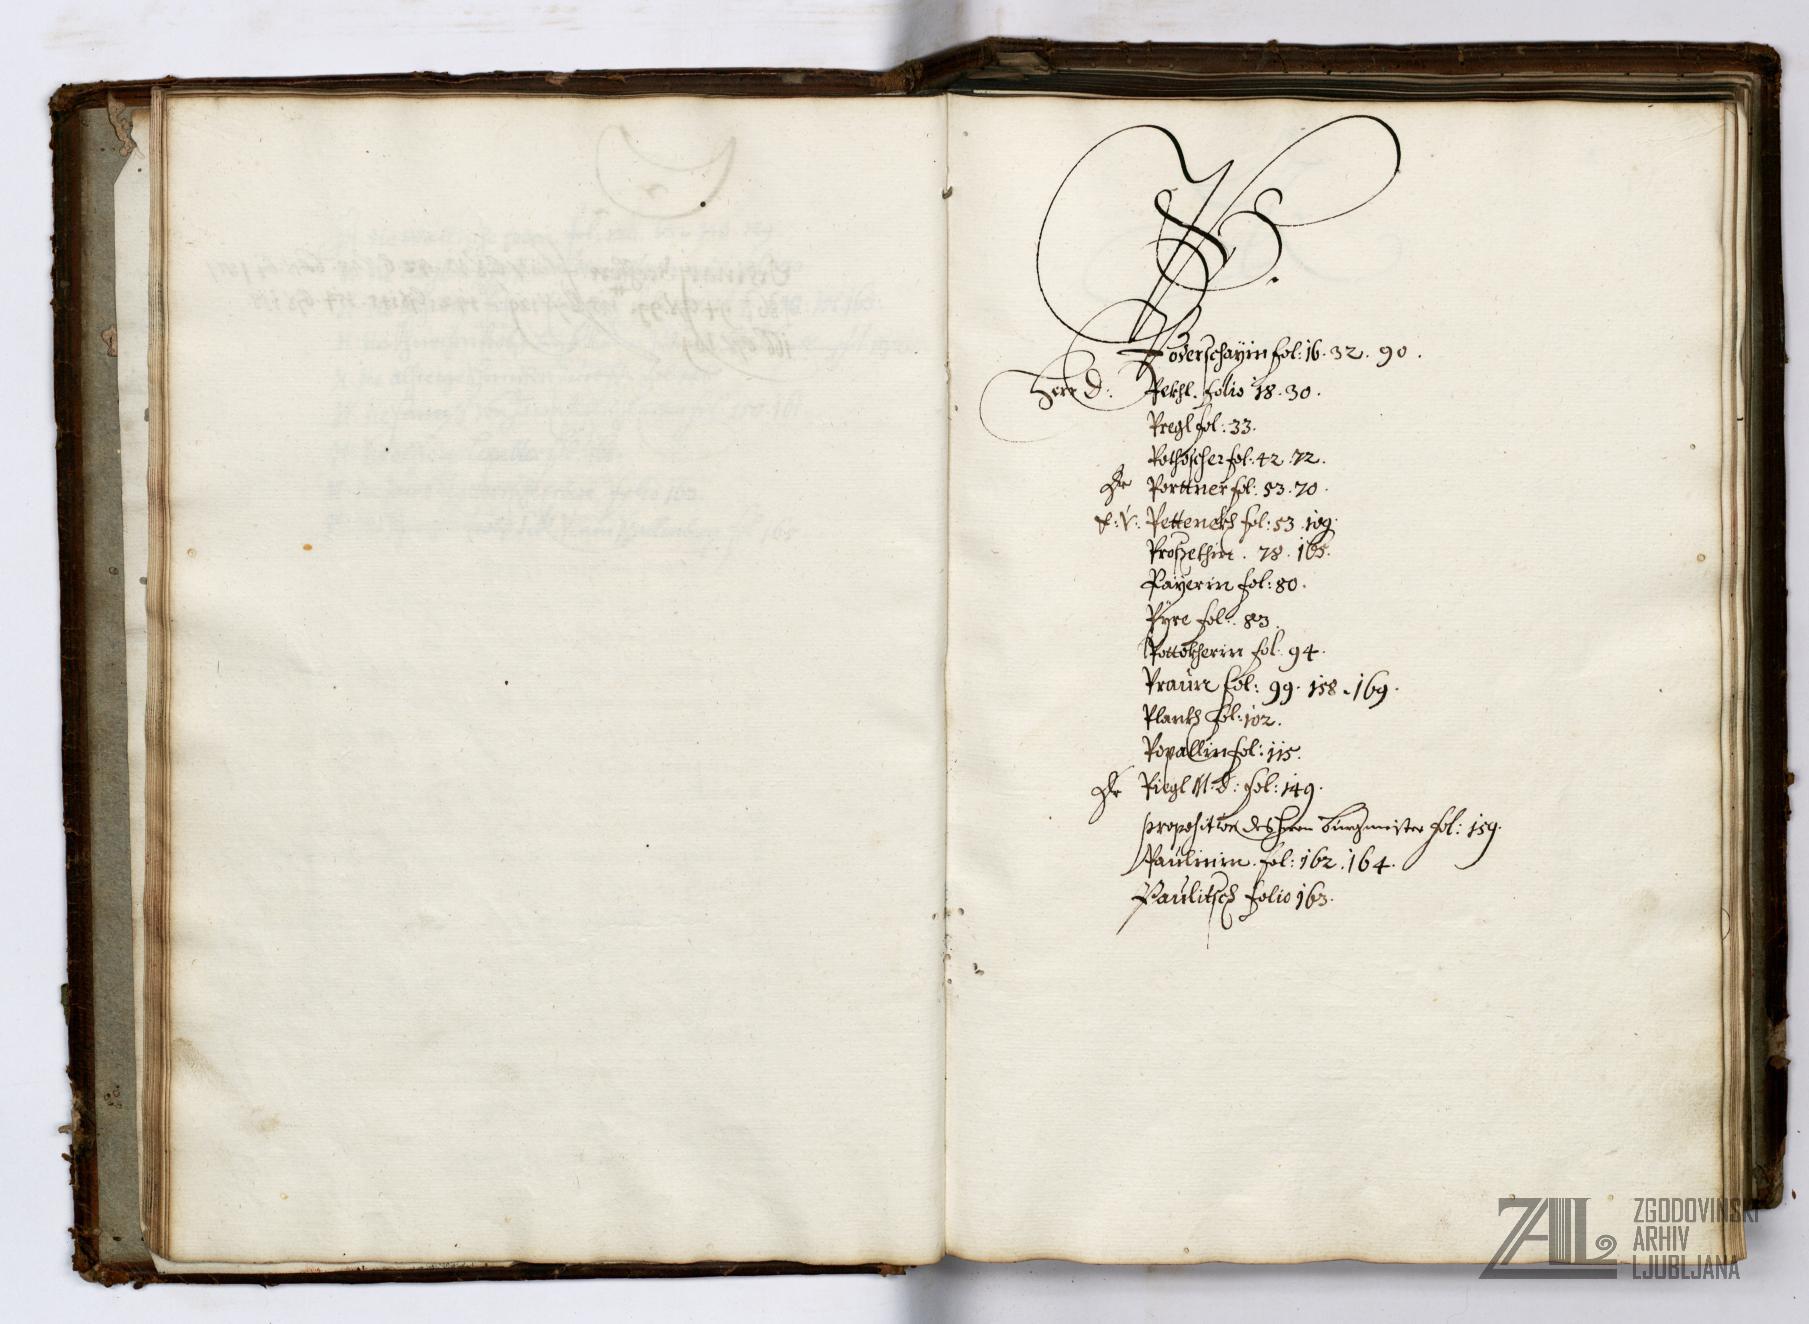 P.
Poderschayin fol: 16. 32. 90.
Herr D: Pekhl. folio 18. 30.
Pregl fol: 33.
fol: 42. 72.
Porttner fol: 53. 70.
Pettenekh fol: 53. 109.
78. 165.
Payerin fol: 80.
Pÿre fol: 83.
Pottokherin fol. 94.
Praun fol: 99. 158. 169.
Plankh fol: 102.
Popallin fol: 115.
Riegl M: D: fol: 149.
proposition des Herrn Burgmeister fol: 159.
Paulinin. fol: 162. 164.
Paulitsch folio 163.
ZAL ZGODOVINSKI
ARHIV
LJUBLJANA